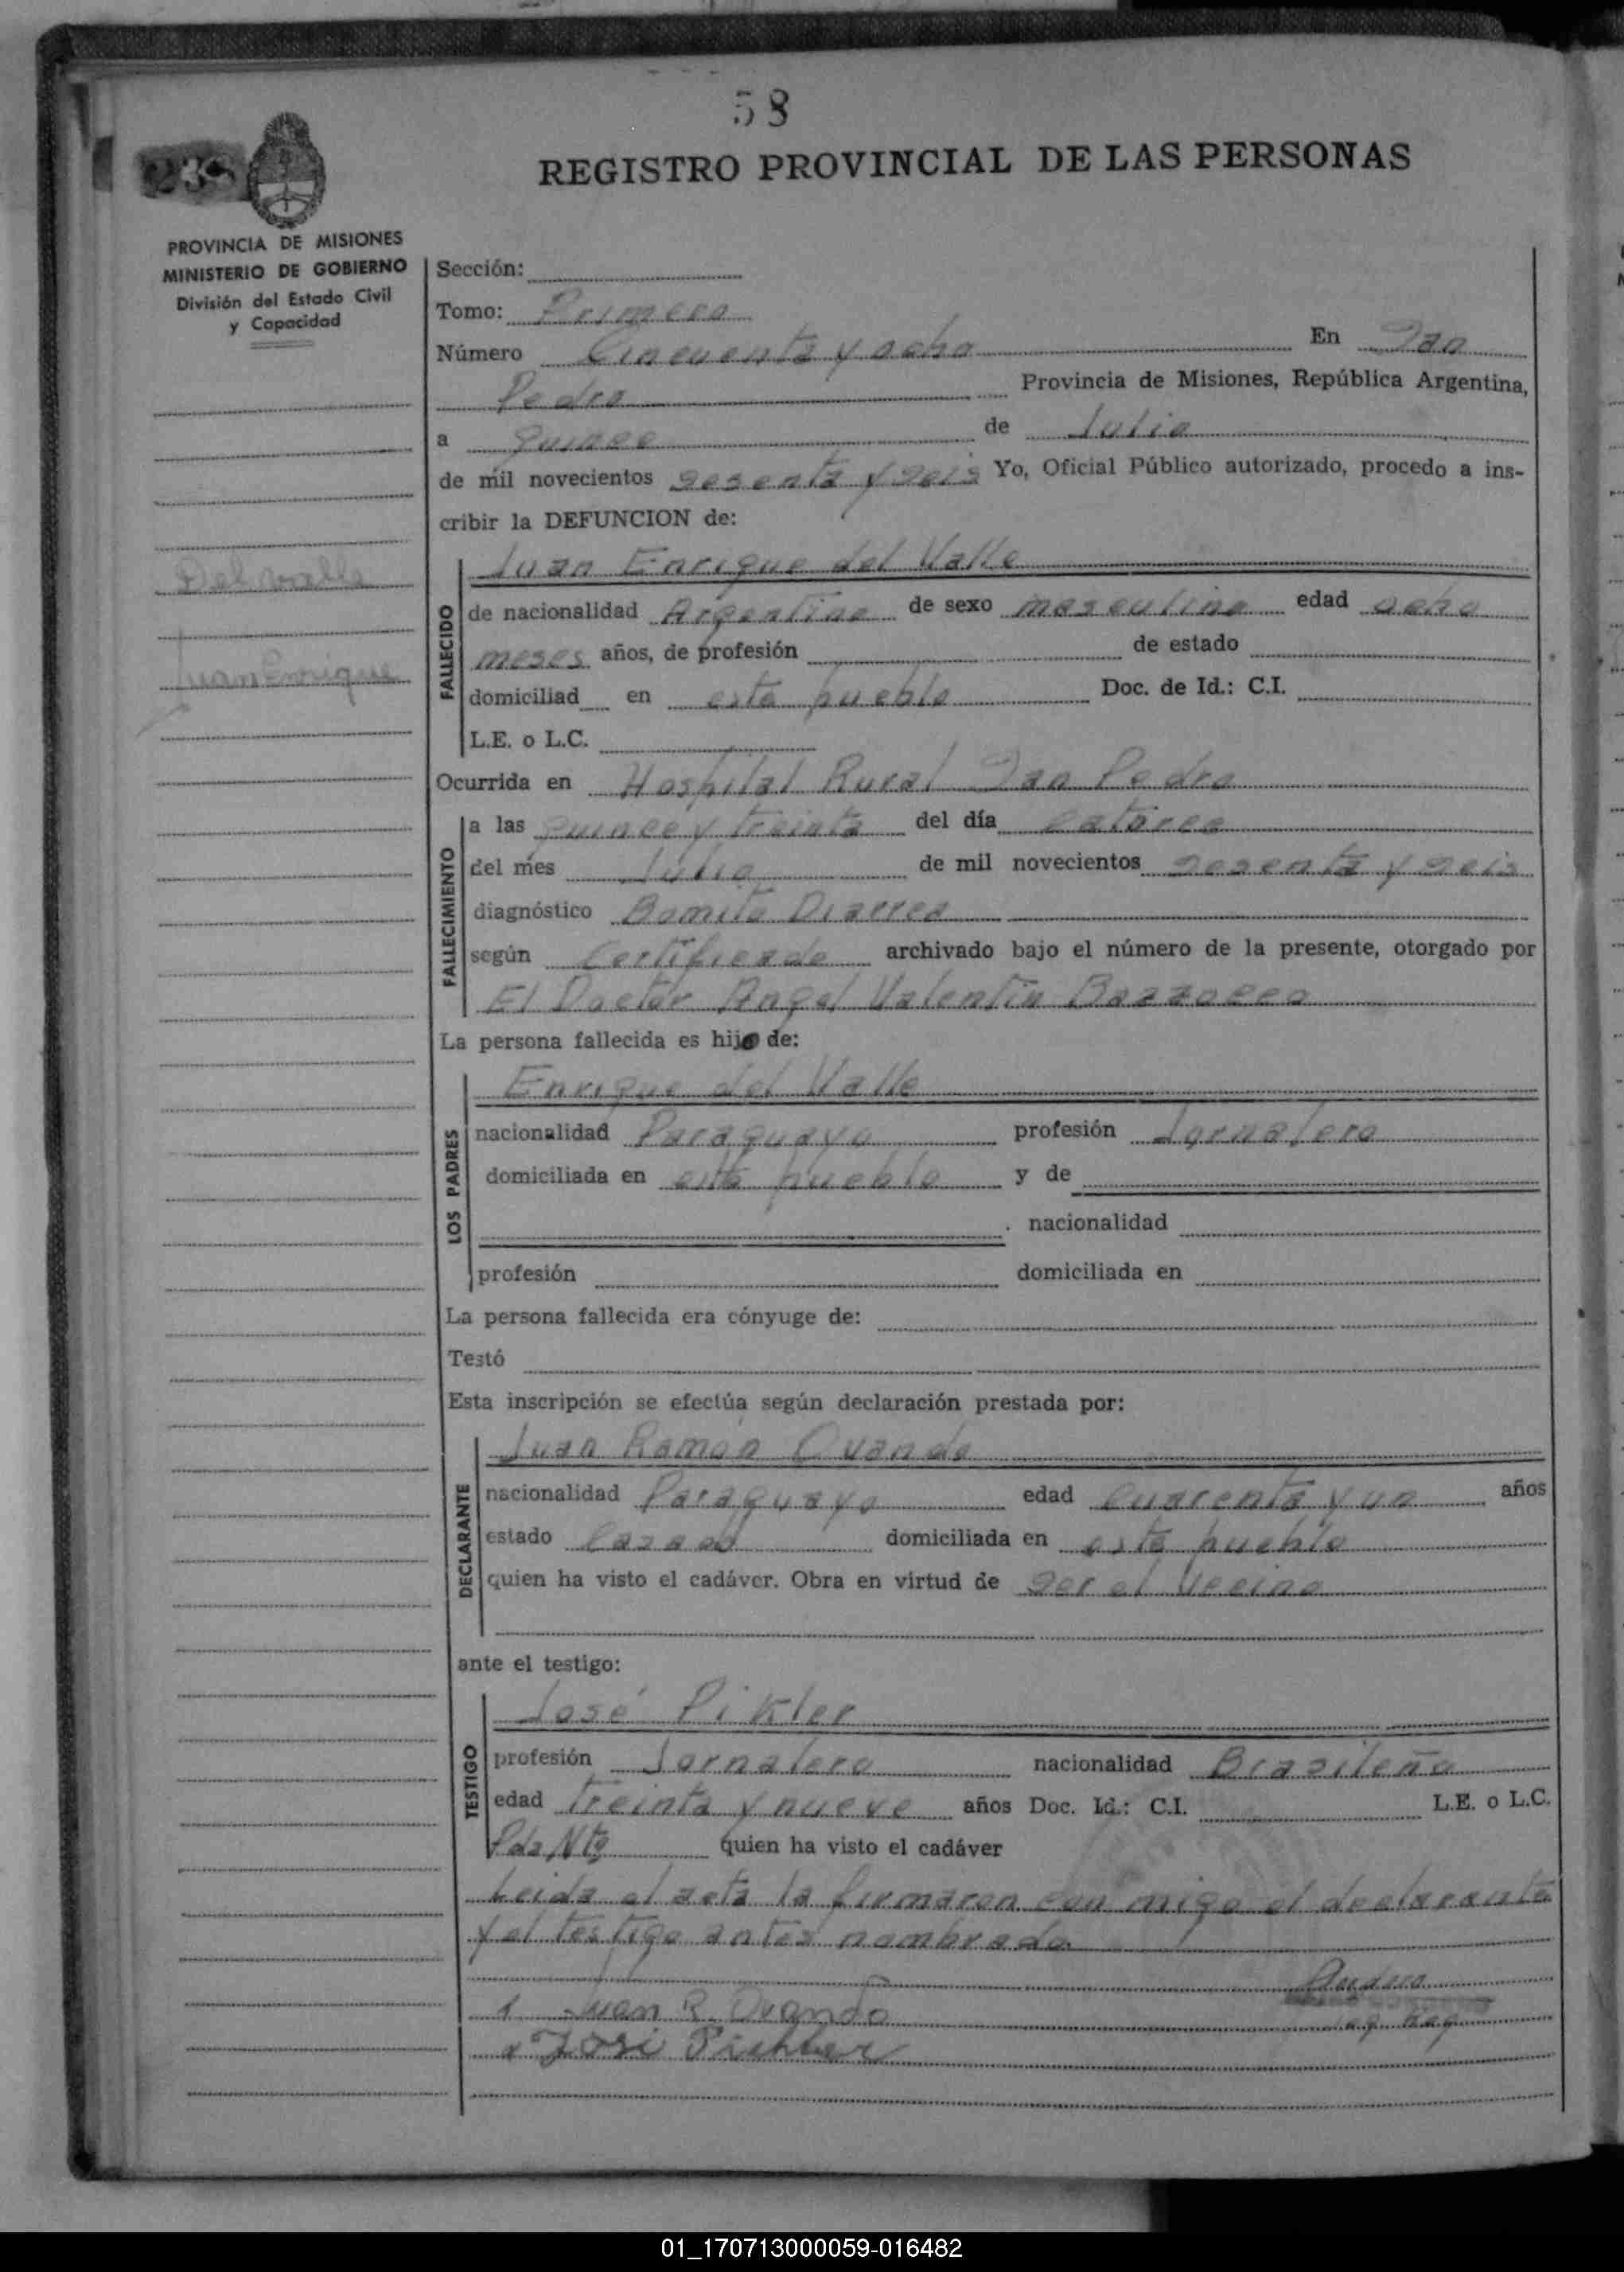 58
REGISTRO PROVINCIAL DE LAS PERSONAS
PROVINCIA DE MISIONES
MINISTERIO DE GOBIERNO
División del Estado Civil
y Capacidad
Del valle
Juan Enrique
Sección:
Tomo: Primero
Número Cincuenta y ocho En San
Pedro Provincia de Misiones, República Argentina,
a quince de Julio
de mil novecientos sesenta y seis Yo, Oficial Público autorizado, procedo a ins-
cribir la DEFUNCION de:
FALLECIDO
Juan Enrique del Valle
de nacionalidad Argentino de sexo masculino edad ocho
meses años, de profesión de estado
domiciliad en este pueblo Doc. de Id.: C.I.
L.E. o L.C.
Ocurrida en Hospital Rural San Pedro
FALLECIMIENTO
a las quince y treinta del día catorce
del mes Julio de mil novecientos sesenta y seis
diagnóstico Bomito Diarrea
según Certificado archivado bajo el número de la presente, otorgado por
El Doctor Angel Valentin
La persona fallecida es hijo de:
LOS PADRES
Enrique del Valle
nacionalidad Paraguayo profesión Jornalero
domiciliada en este pueblo y de
nacionalidad
profesión domiciliada en
La persona fallecida era cónyuge de:
Testó
Esta inscripción se efectúa según declaración prestada por:
DECLARANTE
Juan Ramon Ovando
nacionalidad Paraguayo edad Cuarenta y un años
estado Casado domiciliada en este pueblo
quien ha visto el cadáver. Obra en virtud de ser el Vecino
ante el testigo:
TESTIGO
José Pikler
profesión Jornalero nacionalidad Brasileño
edad Treinta y nueve años Doc. Id.: C.I. L.E. o L.C.
quien ha visto el cadáver
Leida el acta la firmaron con migo el declarante
y el testigo antes nombrado
Juan R. Ovando
José Pichler
01_170713000059-016482